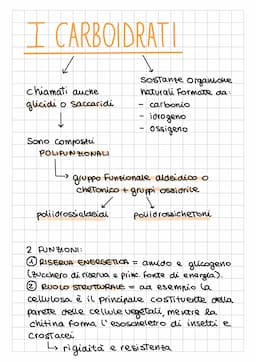 I CARBOIDRATI
chiamati anche
glicidi o saccaridi
sostanze organiche
naturali formate da:
- carbonio
- idrogeno
- ossigeno
Sono composti
POLIFUNZIONALI
↳ gruppo funzionale aldeidico o
chetonico + gruppi ossidrile
poliidrossialdeidi
poliidrossichetoni
2 FUNZIONI:
① RISERVA ENERGETICA = amido e glicogeno
(zucchero di riserva e princ. fonte di energia).
② RUOLO STRUTTURALE = ad esempio la
cellulosa è il principale costituente della
parete delle cellule vegetali, mentre la
chitina forma l'esoscheletro di insetti e
crostacei
↳ rigidità e resistenza